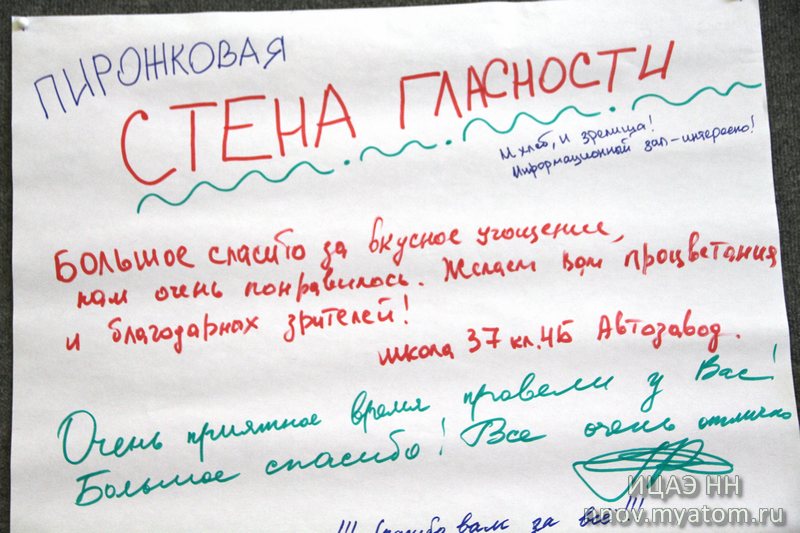 ПИРОЖКОВАЯ
СТЕНА ГЛАСНОСТИ
И хлеб, и зрелища!
Информационный зал-интересно!
Большое спасибо за вкусное угощение,
нам очень понравилось. Желаем вам процветания
и благодарных зрителей!
школа 37 кл.4Б Автозавод.
Очень приятное время провели у Вас!
Большое спасибо! Все очень отлично
!!! Спасибо вам за все!!!
ИЦАЭ НН
nnov.myatom.ru